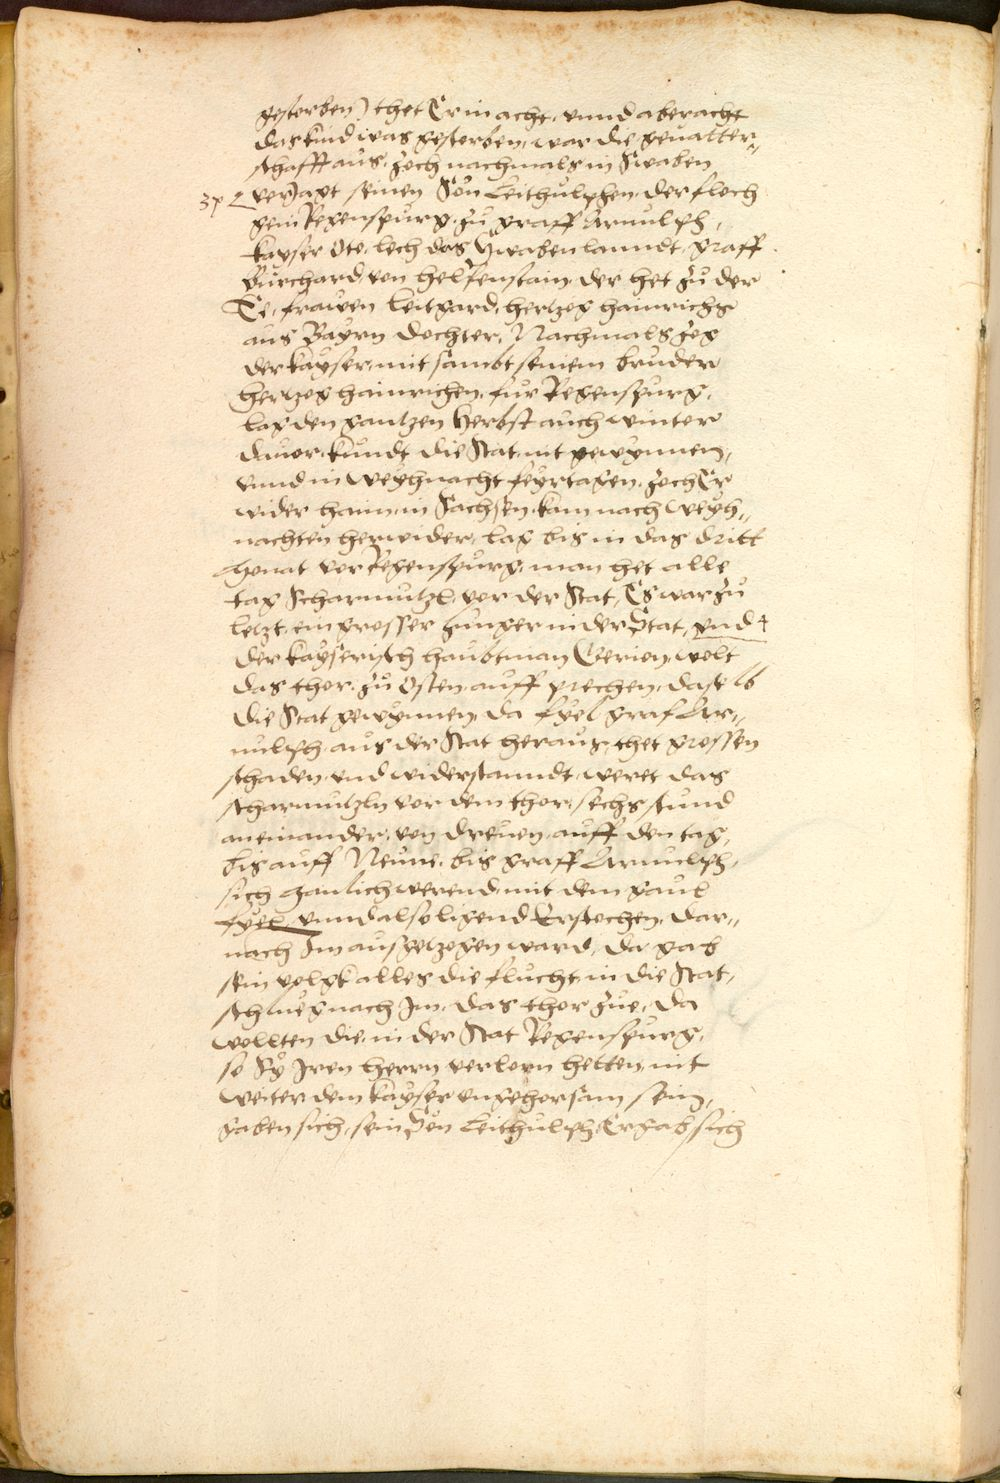 gestorben) thet Er in acht, vnnd aberacht
das kind was gestorben, war die geuatter„
schafft aus, zoch nachmals in Swaben
veryagt seinen Son Leithulphen, der floch
gein Regenspurg, zu graff Arnulph,
kayser Oto, lech das Swabenlanndt, graff
Burchard, von helfenstain, der het zu der
Ee, frawen Leitgard, hertzog hainrichs
aus Bayrn dochter, Nachmals zog
der kayser, mit sambt seinem bruder
hertzog hainrichen, fur Regenspurg,
lag den gantzen Herbst auch winter
dauor, kundt die Stat nit gewynnen,
vnnd in weyhnacht feyrtagen, zoch Er
wider haim, in Sachsen, kam nach weyh„
nachten herwider, lag bis in das dritt
Monat vor Regenspurg, man het alle
tag Scharmutzl, vor der Stat, Es war zu
letzt, ein grosser hunger in der Stat, vnd
der kayserisch haubtman Gerion, wolt
das thor, zu Osten, auff prechen, daselb
die Stat gewynnen, da fyel graf Ar„
nulph, aus der Stat heraus, thet grossen
schaden, vnd widerstanndt, weret das
scharmutzln vor dem thor, sechs stund
aneinander, von dreuen, auff den tag,
bis auff Neune, bis graff Arnulph,
sich manlich werend, mit dem gaul
fyel, vnnd also ligend Erstochen, dar„
nach Im ausgetzogen ward, da gab
sein volgk alles die flucht, in die Stat,
schlueg nach Im, das thor zue, da
wollten die, in der Stat Regenspurg,
so Sy Iren herrn verlorn hetten, nit
weiter dem kayser vngehorsam sein,
gaben sich, sein Son Leithulph, Ergab sich